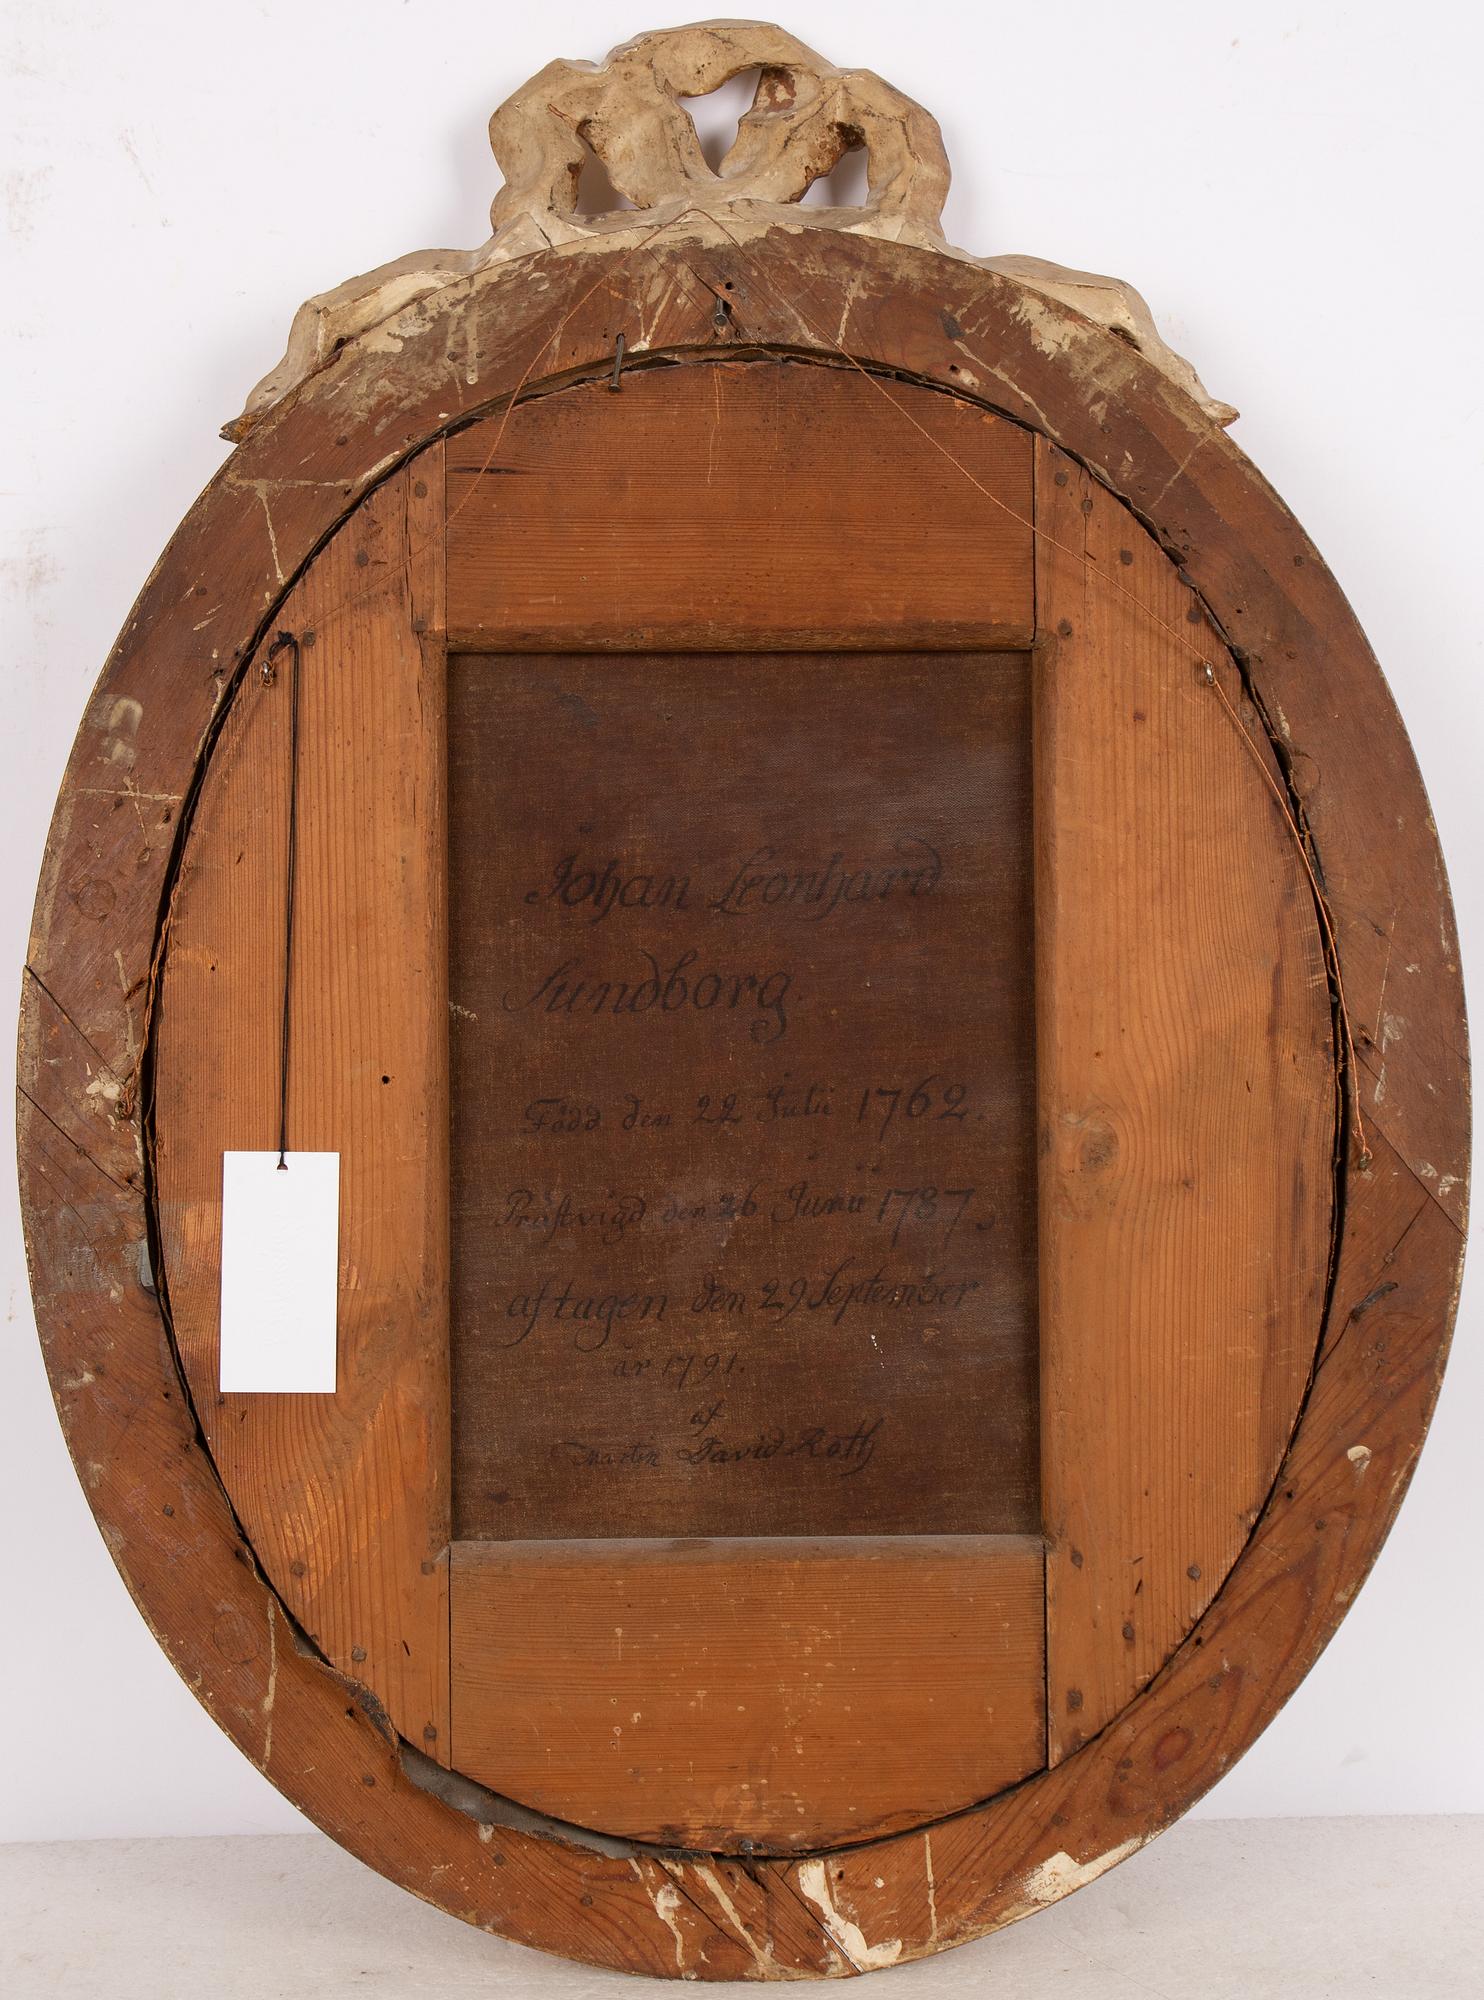 Johan Leonhard
Sundborg.
Född den 22 Julii 1762.
Prästvigd den 26 Junii 1787,
aftagen den 29 September
år 1791.
af
Martin David Roth